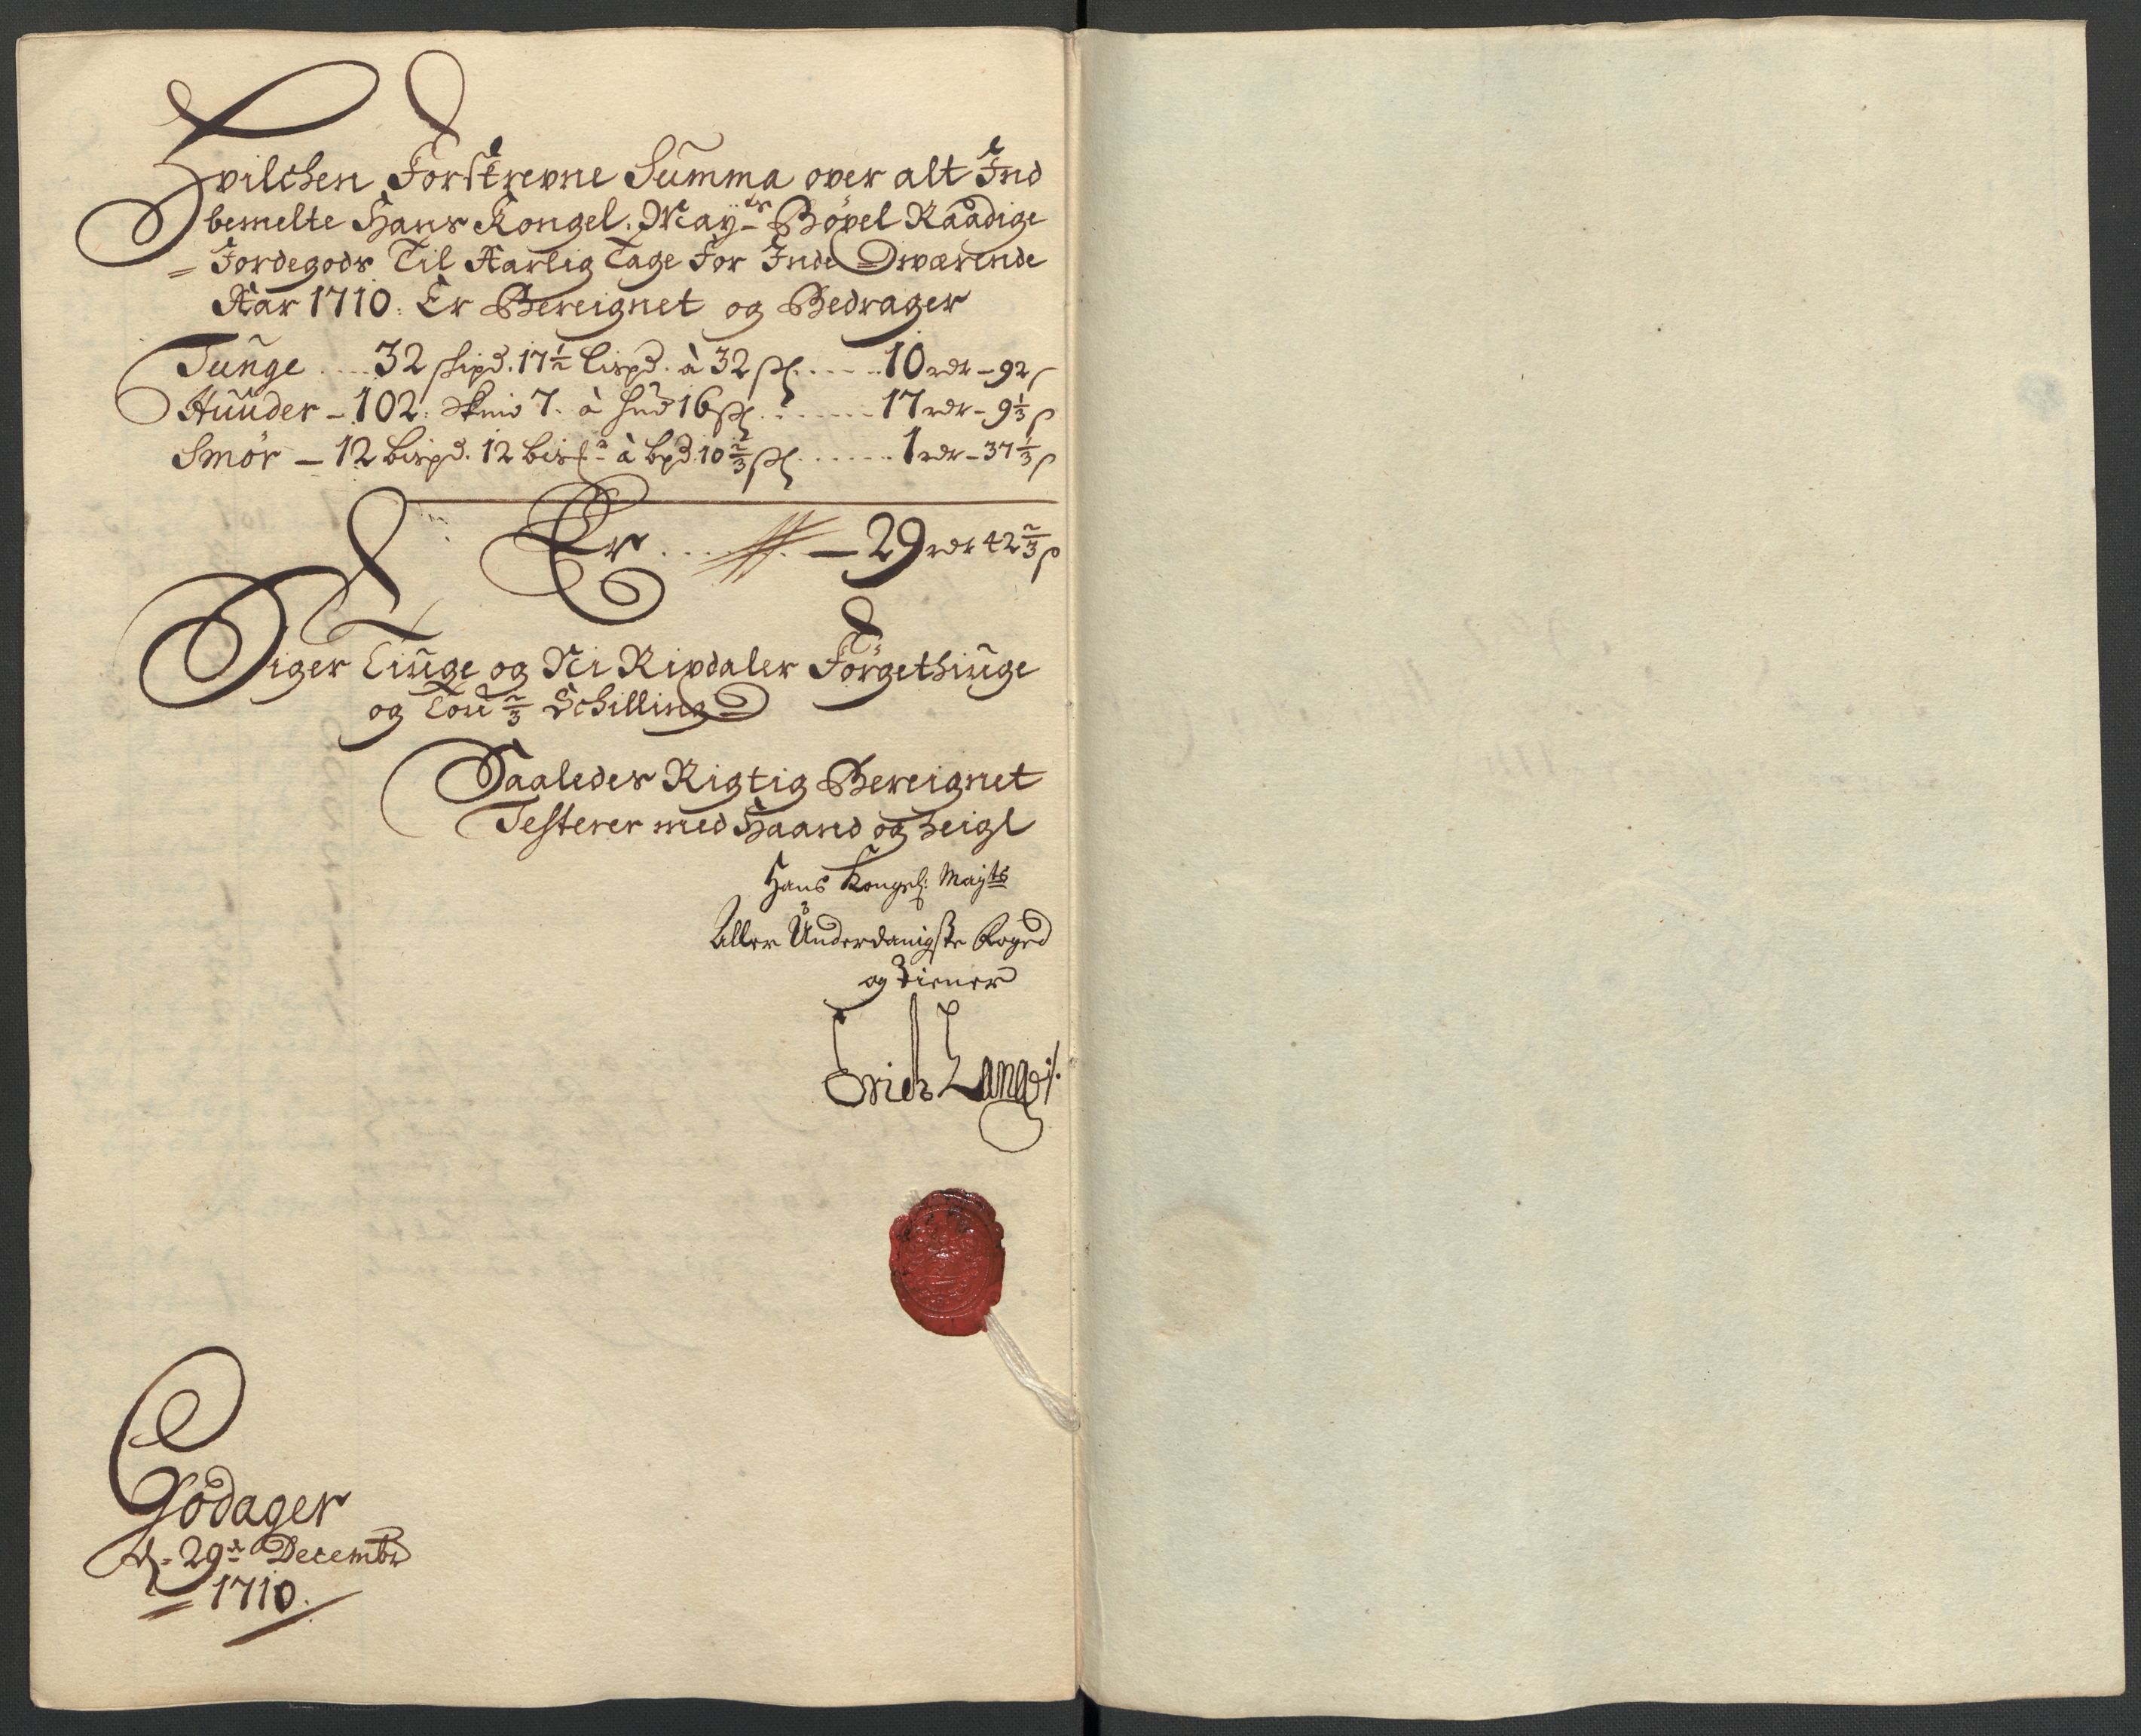 Hvilchen Forskrevne Summa over alt Ind
bemelte Hans Kongel. Mayts Bøxel Raadige
Jordegods Til Aarlig Tage For Inde Dwærende
Aar 1710. Er Bereignet og Bedrager
Tunge .... 32 skipd. 17½ lispd. à 32 sk ..... 10 rdr - 92 s
Huuder - 102: Skind 7. à hud 16 sk ....... 17 rdr - 9⅓ s
Smør - 12 bispd. 12 à bpd 10⅔ sk ...... 1 rdr - 37⅓ s
Er .... 29 rdr 42⅔ s
Siger Tiuge og Ni Rixdaler Førgethiuge
og Tou ⅔ Schilling
Saaledes Rigtig Bereignet
Testerer med Haand og Zeigl
Hans Kongel: Mayts
Aller Underdanigste Foged
og Tiener
Erich Lange
Godager
d. 29de Decembr
1710.